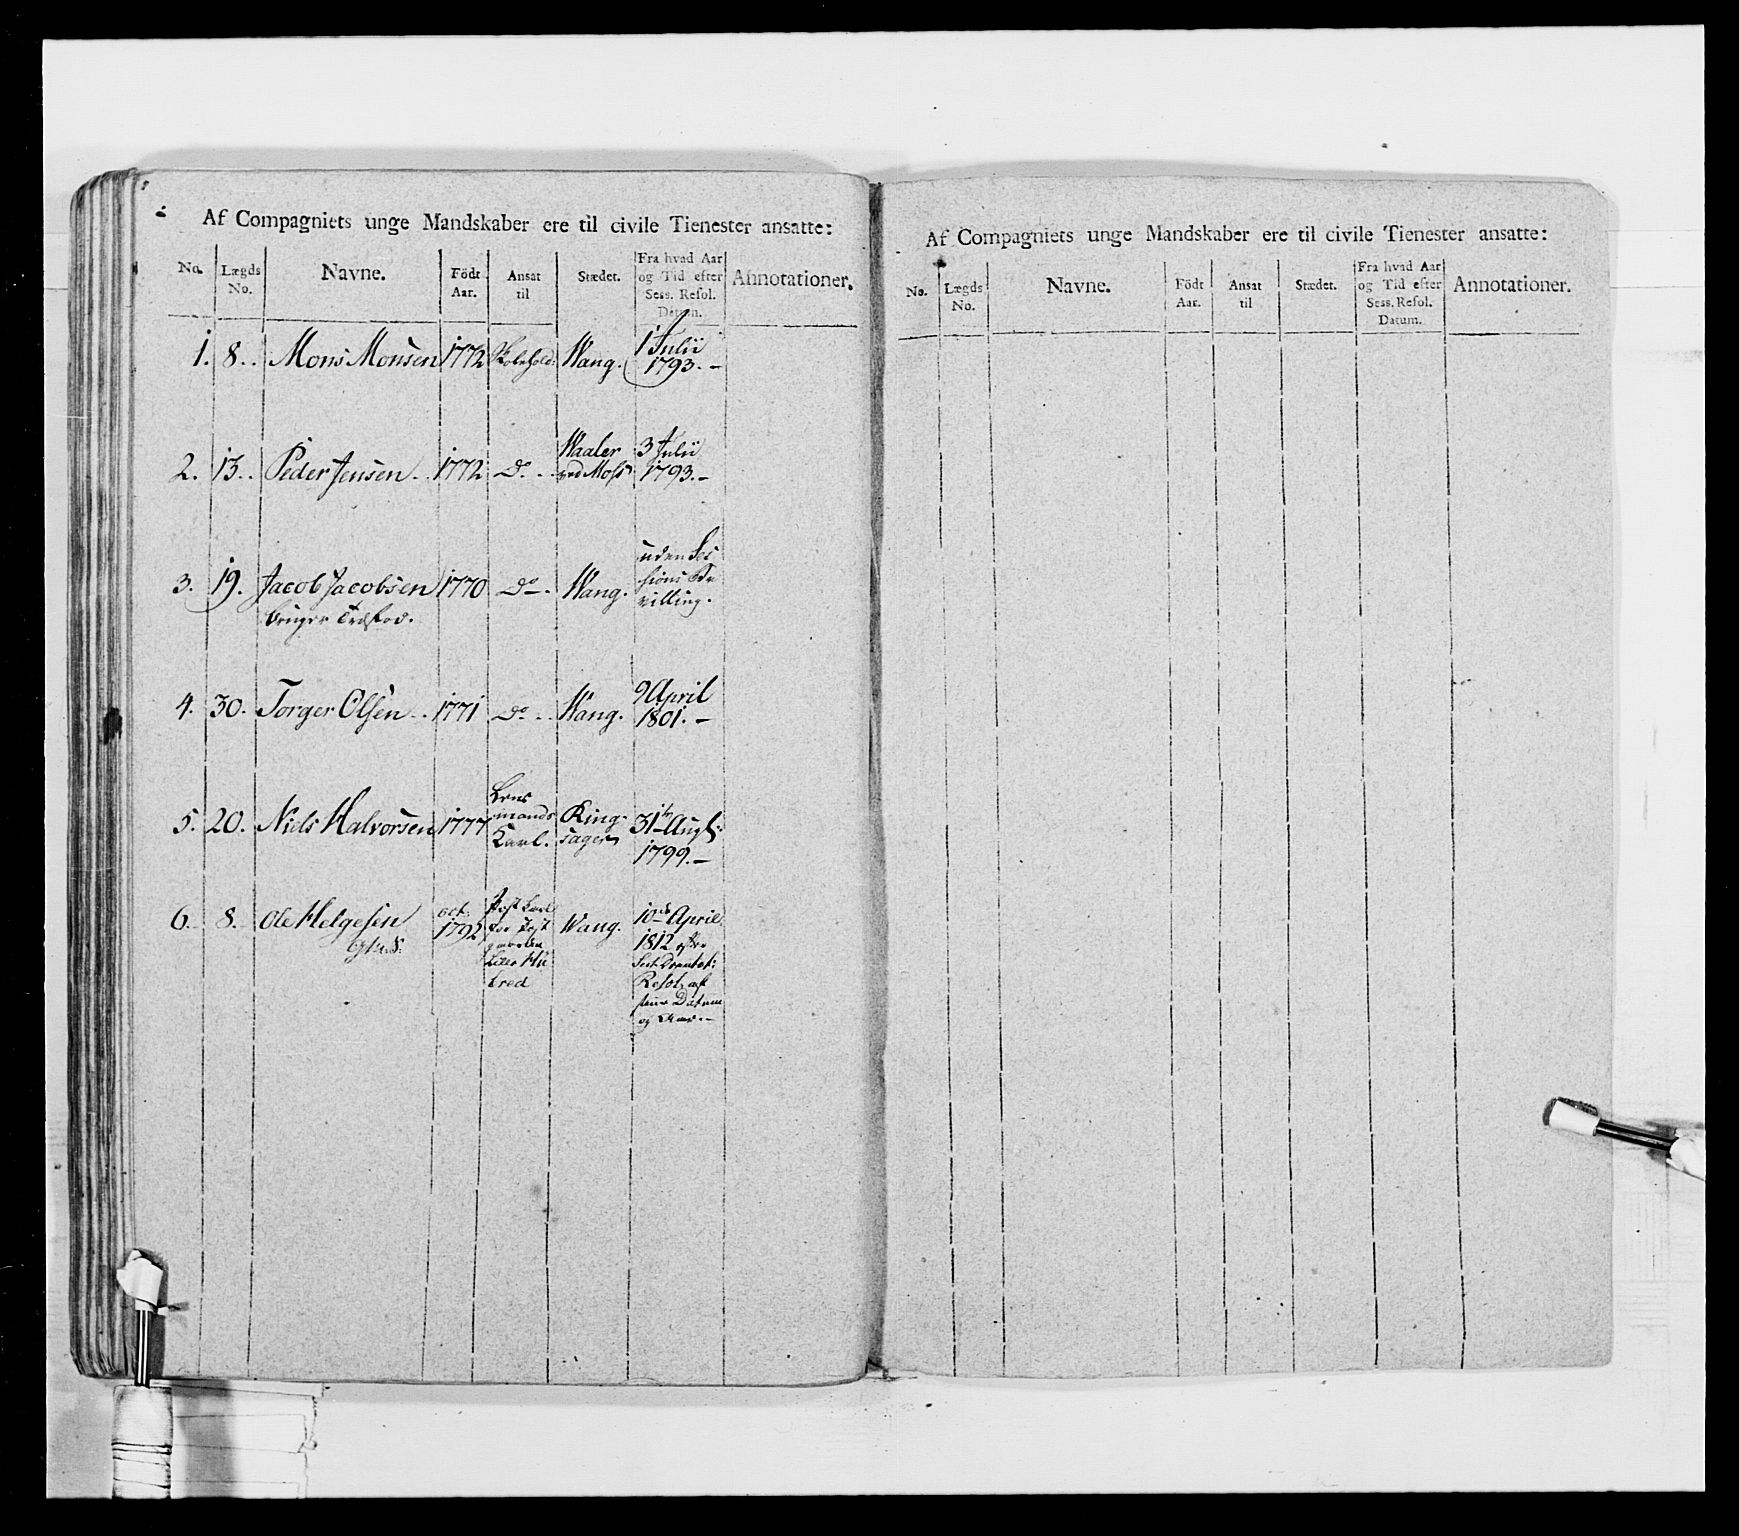 Af Compagniets unge Mandskaber ere til civile Tienester ansatte:
No. Lægds No. Navne. Födt Aar. Ansat til Stædet. Fra hvad Aar og Tid efter Sess. Resol. Datum. Annotationer.
1. 8. Mons Monsen 1772 Skolehold: Wang. 1 Julii 1793.
2. 13. Peder Jensen 1772 Do. Waaler ved Moss 3 Julii 1793.
3. 19. Jacob Jacobsen 1770 Do. Wang. uden Sessions Bevilling.
bruger Træfod.
4. 30. Torger Olsen 1771 Do. Wang. 9 April 1801.
5. 20. Niels Halvorsen 1777 Lensmands Karl. Ringsager 31te Augt: 1799.
6. 8. Ole Helgesen oct. 1792 Postkarl for Postgaarden Wang. 10de April 1812 efter
Resol. af
Datum
og Aar.
Af Compagniets unge Mandskaber ere til civile Tienester ansatte:
No. Lægds No. Navne. Födt Aar. Ansat til Stædet. Fra hvad Aar og Tid efter Sess. Resol. Datum. Annotationer.